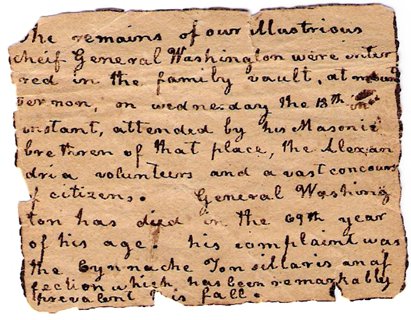 he remains of our illustrious
cheif General Washington were inter
red in the family vault, at mount
vernon, on wednesday the 18th
instant, attended by his Masonic
brethren of that place, the Alexan
dria volunteers and a vast concours
f citizens. General Washing
ton has died in the 69th year
of his age his complaint was
the Cynnache Tonsillaris an af
fection which has been remarkably
prevalent is fall.